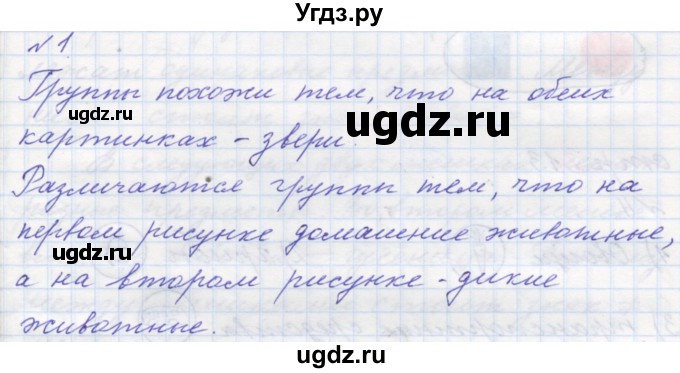 Угдз.ру
№1
Группы похожи тем, что на обеих
картинках - звери.
Различаются группы тем, что на
первом рисунке домашение животные,
а на втором рисунке - дикие
животные.
ugdz.ru
ugdz.ru
ugdz.ru
ugdz.ru
ugdz.ru